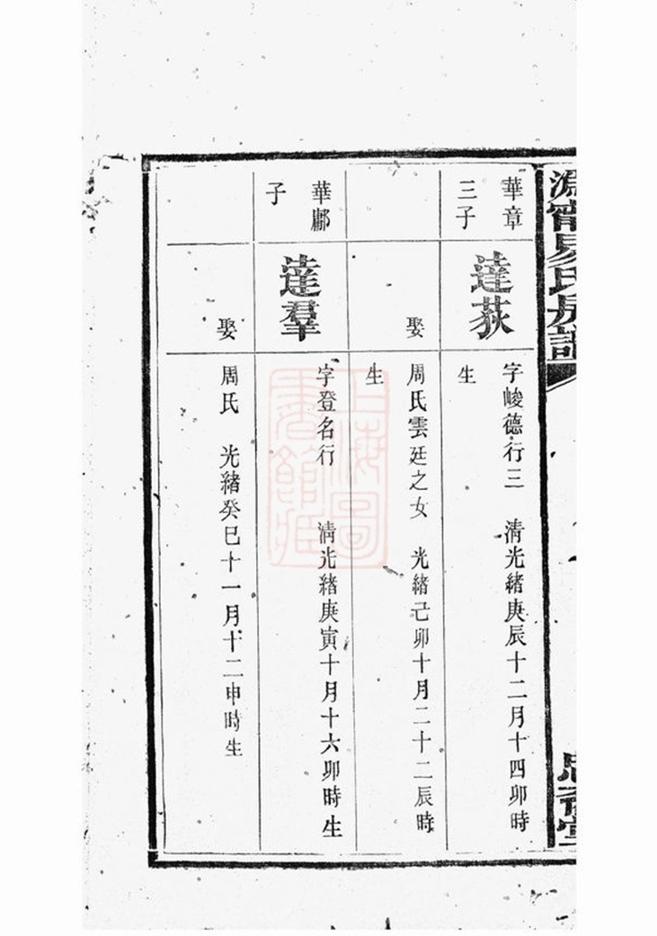 華章
三子
達荻
字峻德行三 清光緒庚辰十二月十四卯時
生
娶
周氏雲廷之女 光緒己卯十月二十二辰時
生
華鄘
子
達羣
字登名行 清光緒庚寅十月十六卯時生
娶
周氏 光緒癸巳十一月十二申時生
上海圖
書館藏